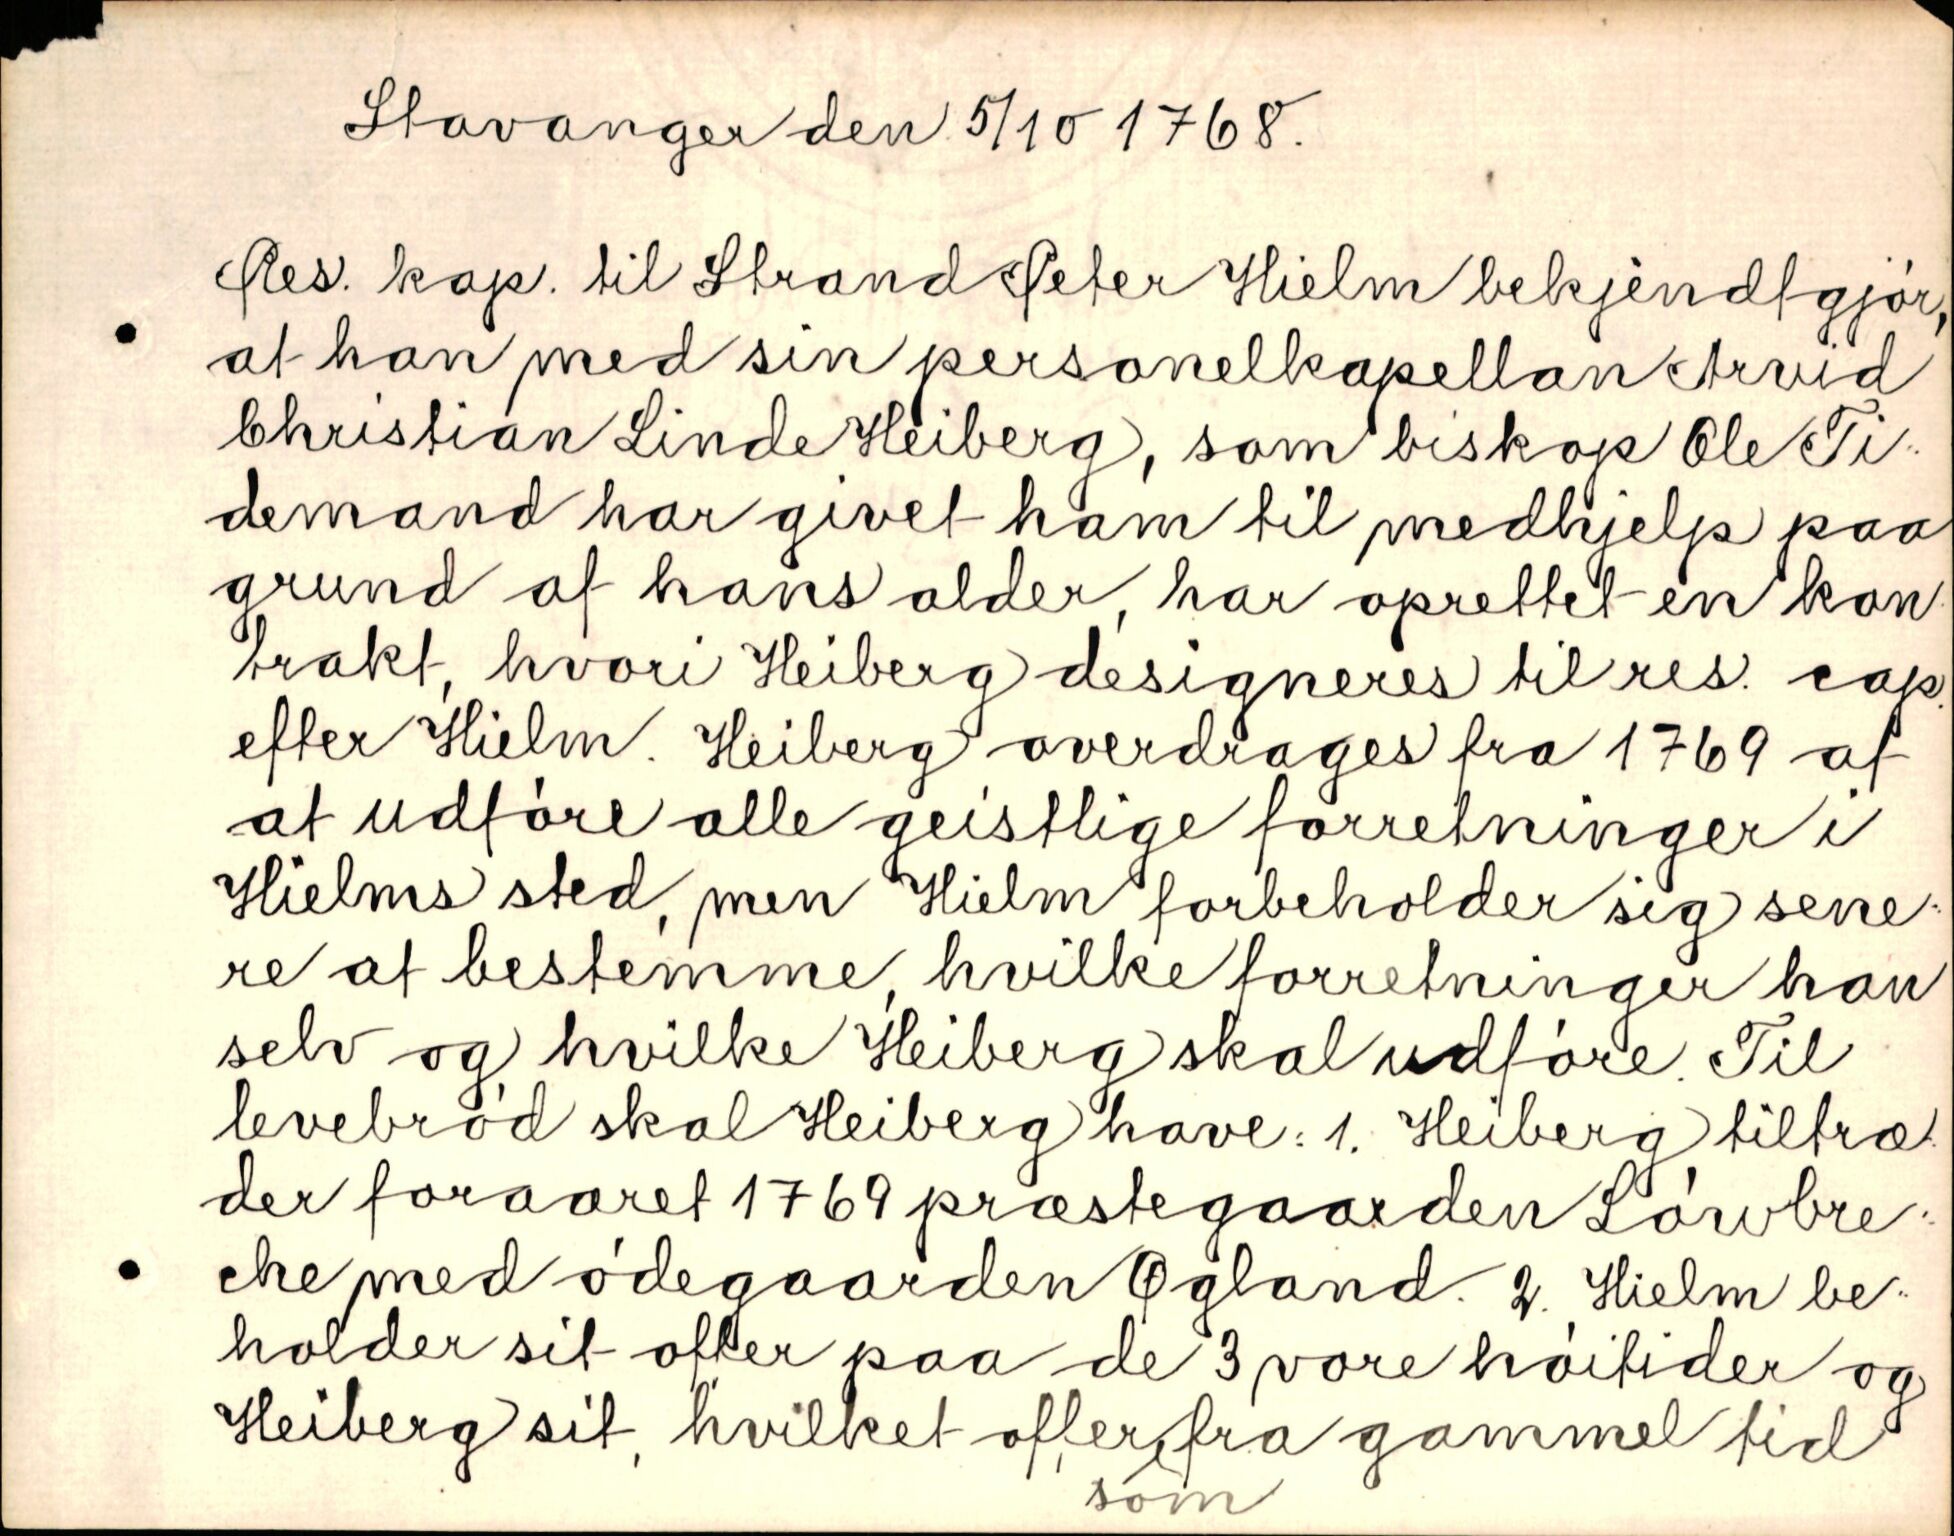 Stavanger den 5/10 1768.
Res. kap. til Strand Peter Hielm bekjendtgjór,
at han med sin personelkapellan Arvid
Christian Linde Heiberg, som biskop Ole Ti-
demand har givet ham til medhjelp paa
grund af hans alder, har oprettet en kon
trakt, hvori Heiberg designeres til res. cap.
efter Hielm. Heiberg overdrages fra 1769 af
at udfóre alle geistlige forretninger i
Hielms sted, men Hielm forbeholder sig sene-
re at bestemme, hvilke forretninger han
selv og hvilke Heiberg skal udfóre. Til
levebród skal Heiberg have: 1. Heiberg tiltræ-
der foraaret 1769 præstegaarden Lówbre-
che med ódegaarden Øgland. 2. Hielm be-
holder sit offer paa de 3 vore hóitider og
Heiberg sit, hvilket offer, fra gammel tid
som